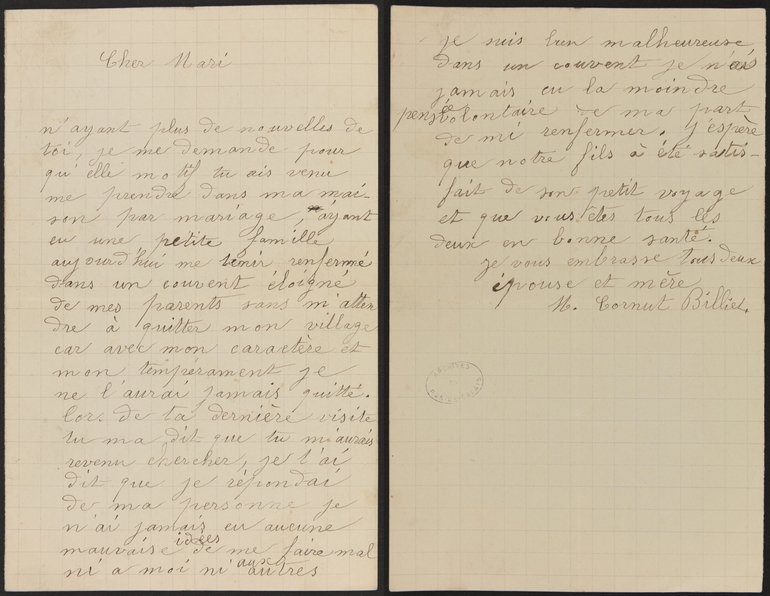 Cher Mari
n'ayant plus de nouvelles de
toi, je me demande pour
qu'elle motif tu ais venu
me prendre dans ma mai-
son par mariage, ayant
eu une petite famille
aujourd'hui me tenir renfermé
dans un couvent éloigné
de mes parents sans m'atten
dre à quitter mon village
car avec mon caractère et
mon tempérament je
ne l'aurai jamais quitté.
lor. de ta dernière visite
tu ma dit que tu m'aurais
revenu chercher, je t'ai
dit que je répondai
de ma personne je
n'ai jamais eu aucune
mauvaise idées de me faire mal
ni a moi ni aux autres
je suis bien malheureuse
dans un couvent je n'ais
jamais eu la moindre
pensée volontaire de ma part
de mi renfermer. j'espère
que notre fils à été satis-
fait de son petit voyage
et que vous êtes tous les
deux en bonne santé.
je vous embrasse tous deux
épouse et mère
M. Cornut Billiet.
ARCHIVES